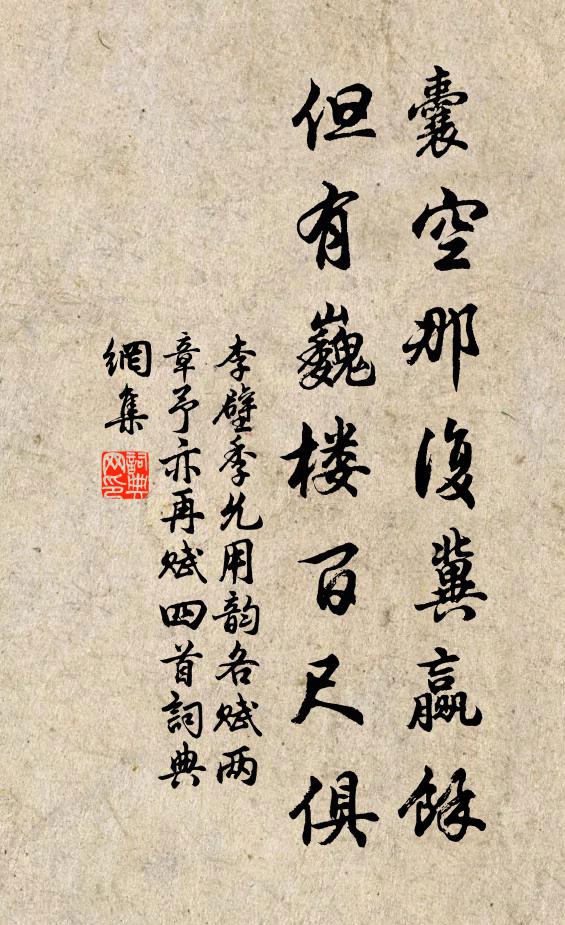 囊空那復冀贏餘
但有巍楼百尺俱
李壁季允用韵各赋两
章予亦再赋四首詞典
網集
詞典
网印